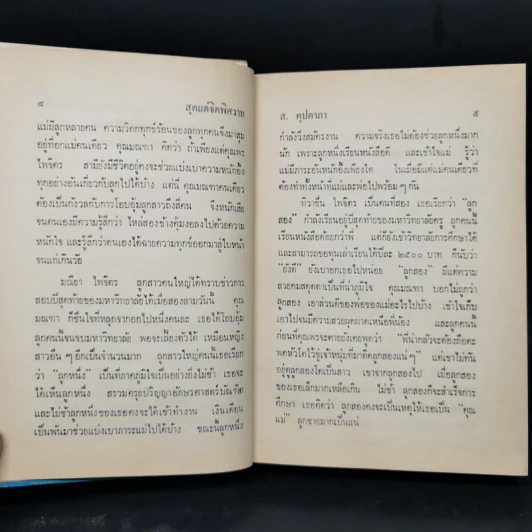 ๔ สุดแต่จิตพิศวาท
แม่มีลูกหลายคน ความวิตกทุกข์ร้อนของลูกทุกคนจึงมาสุม
อยู่ที่อกแม่คนเดียว คุณมณฑา คิดว่า ถ้าเพียงแต่คุณพระ
ไพจิตร สามียังมีชีวิตอยู่คงจะช่วยแบ่งเบาความหนักอึ้ง
ทุกอย่างอันเกี่ยวกับลูกไปได้บ้าง แต่นี่ คุณมณฑาคนเดียว
ต้องเป็นกังวลกับการโอบอุ้มลูกสาวถึงสี่คน จึงหนักเสีย
จนตนเองมีความรู้สึกว่า ไหล่สองข้างคุ้มงอลงไปด้วยความ
หนักใจ และรู้สึกว่าตนเองได้ฉายความทุกข์ออกมาสู่ใบหน้า
จนแก่เกินวัย
มณียา ไพจิตร ลูกสาวคนใหญ่ได้ทราบข่าวการ
สอบปีสุดท้ายของมหาวิทยาลัยได้เมื่อสองสามวันนี้ คุณ
มณฑา ก็ชื่นใจที่หลุดจากอกไปหนึ่งคนละ เธอได้โอบอุ้ม
ลูกคนนี้จนจบมหาวิทยาลัย พอจะเลี้ยงตัวได้ เหมือนหญิง
สาวอื่น ๆ อีกเป็นจำนวนมาก ลูกสาวใหญ่คนนี้เธอเรียก
ว่า “ลูกหนึ่ง” เป็นที่ภาคภูมิใจเป็นอย่างยิ่งไม่ช้า เธอจะ
ได้เห็นลูกหนึ่ง สรวมครุยปริญญาอักษรศาสตร์บัณฑิต
และไม่ช้าลูกหนึ่งของเธอคงจะได้เข้าทำงาน เงินเดือน
เป็นพันมาช่วยแบ่งเบาภาระแม่ไปได้บ้าง ขณะนี้ลูกหนึ่ง
ส. คุปตาภา ๕
กำลังวิ่งสมัครงาน ความจริงเธอไม่ต้องช่วยลูกหนึ่งมาก
นัก เพราะลูกหนึ่งเรียนหนังสือดี และเข้าใจแม่ รู้ว่า
แม่มีภาระอันหนักอึ้งเพียงใด ในเมื่อมีแต่แม่คนเดียวที่
ต้องทำทั้งหน้าที่แม่และพ่อไปพร้อม ๆ กัน
ทิวาอื่น ไพจิตร เป็นคนที่สอง เธอเรียกว่า “ลูก
สอง” กำลังเรียนอยู่ปีสุดท้ายของมหาวิทยาลัยครู ลูกคนนี้
เรียนหนังสือด้อยกว่าพี่ แต่ก็ยังเข้าวิทยาลัยการศึกษาได้
และสามารถขอทุนเล่าเรียนได้ปีละ ๒๕๐๐ บาท ก็นับว่า
“ยังดี” ยังเบาอกเธอไปหน่อย “ลูกสอง” มีแต่ความ
สวยสดุดตาเป็นที่น่าภูมิใจ คุณมณฑา บอกไม่ถูกว่า
ลูกสอง เอาส่วนดีของพ่อของแม่อะไรไปบ้าง เข้าใจเก็บ
เอาไปจนมีความสวยผุดผาดเหนือพี่น้อง และลูกคนนี้
ก่อนที่คุณพระจะตายยังเคยพูดว่า “พี่น่ากลัวจะต้องถือตะ
พดหัวโตไว้ขู่เจ้าหนุ่มที่มาติดลูกสองแน่ๆ” แต่เขาไม่ทัน
อยู่ดูลูกสองโตเป็นสาว เขาจากลูกสองไป เมื่อลูกสอง
ของเธอเล็กมากเหลือเกิน ไม่ช้า ลูกสองก็จะสำเร็จการ
ศึกษา เธอคิดว่า ลูกสองคงจะเป็นเหตุให้เธอเป็น “คุณ
แม่” ลูกชายมากเป็นแน่